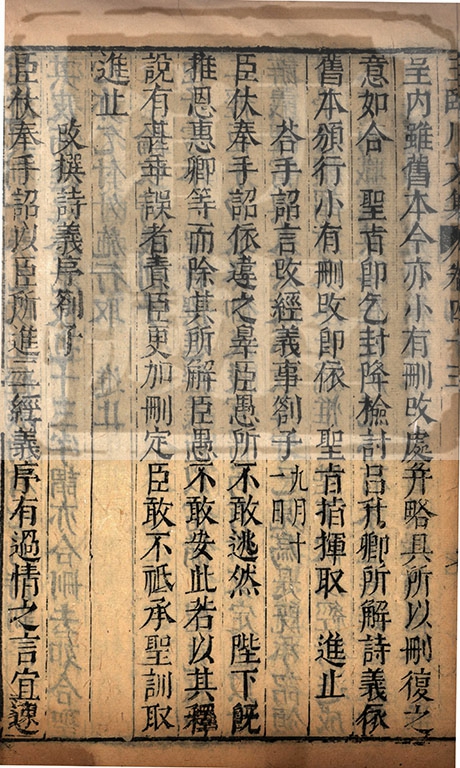 王臨川文集 卷四十三
呈內雖舊本今亦小有刪攺處并略具所以刪復之
意如合 聖㫖即乞封降檢討呂升卿所解詩義依
舊本頒行小有刪攺即依 聖㫖指揮取 進止
荅手詔言攺經義事劄子九月十一日
臣伏奉手詔依違之辠臣愚所不敢逃然 陛下旣
推恩惠卿等而除其所解臣愚不敢安此若以其釋
說有甚乖誤者責臣更加刪定臣敢不祗承聖訓取
進止
攺撰詩義序劄子
臣伏奉手詔以臣所進三經義序有過情之言宜速